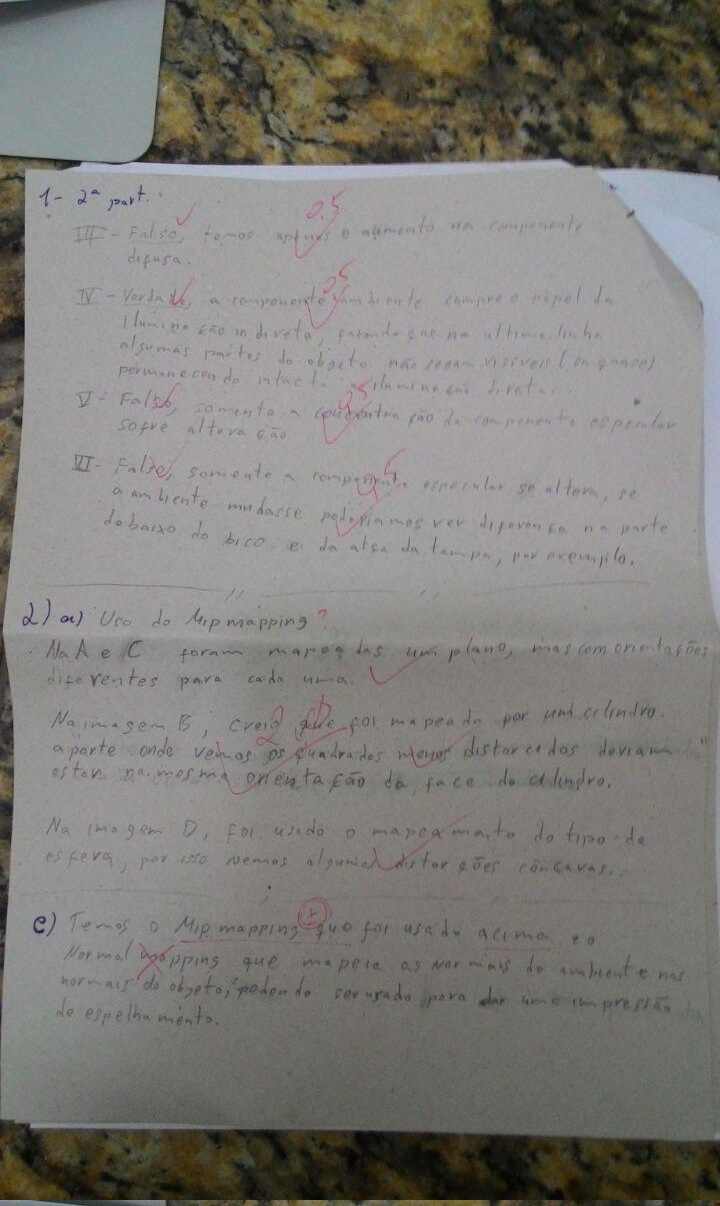 1- 2ª part.
III - Falso, temos apenas o aumento na componente
difusa. 0.5
IV - Verdade, a componente ambiente cumpre o papel da 0.5
iluminação indireta, fazendo que na ultima linha
algumas partes do objeto não sejam visíveis (ou quase)
permanecendo intacta a iluminação direta.
V - Falso, somente a concentração da componente especular 0.5
sofre alteração
VI - Falso, somente a componente especular se altera, se
a ambiente mudasse poderiamos ver diferença na parte
debaixo do bico e da alça da tampa, por exemplo.
2) a) Uso do Mipmapping ?
Na A e C foram mapeadas um plano, mas com orientações
diferentes para cada uma.
Na imagem B, creio que foi mapeado por um cilindro.
a parte onde vemos os quadrados menos distorcidos deviam
estar na mesma orientação da face do cilindro.
Na imagem D, foi usado o mapeamento do tipo de
esfera, por isso vemos algumas distorções côncavas.
c) Temos o Mipmapping que foi usado acima e o
Normal mapping que mapeia as normais do ambiente nas
normais do objeto, podendo ser usado para dar uma impressão
de espelhamento.